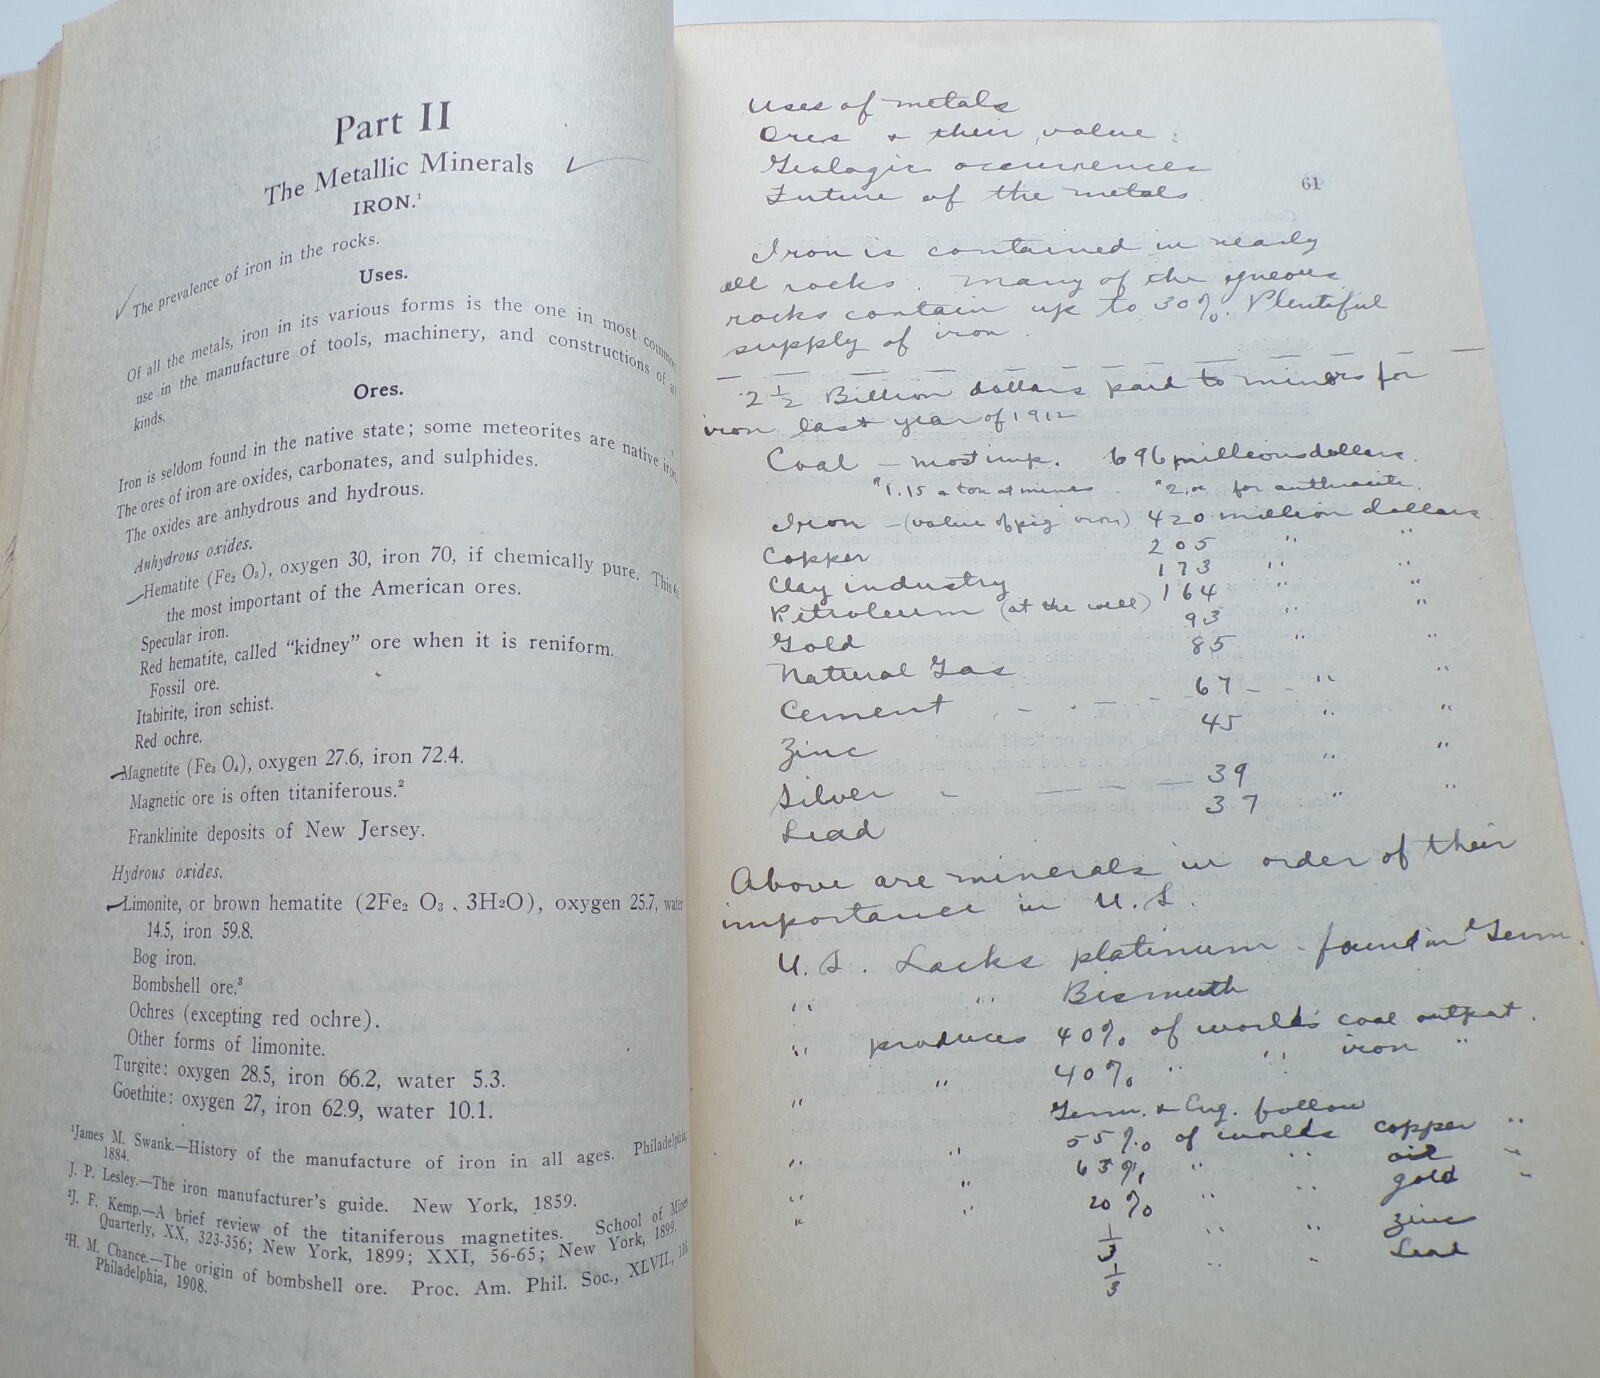 Part II
The Metallic Minerals
IRON.¹
The prevalence of iron in the rocks.
Uses.
Of all the metals, iron in its various forms is the one in most common
use in the manufacture of tools, machinery, and constructions of all
kinds.
Ores.
Iron is seldom found in the native state; some meteorites are native iron.
The ores of iron are oxides, carbonates, and sulphides.
The oxides are anhydrous and hydrous.
Anhydrous oxides.
Hematite (Fe₂ O₃), oxygen 30, iron 70, if chemically pure. This is
the most important of the American ores.
Specular iron.
Red hematite, called "kidney" ore when it is reniform.
Fossil ore.
Itabirite, iron schist.
Red ochre.
Magnetite (Fe₃ O₄), oxygen 27.6, iron 72.4.
Magnetic ore is often titaniferous.²
Franklinite deposits of New Jersey.
Hydrous oxides.
Limonite, or brown hematite (2Fe₂ O₃ . 3H₂O), oxygen 25.7, water
14.5, iron 59.8.
Bog iron.
Bombshell ore.³
Ochres (excepting red ochre).
Other forms of limonite.
Turgite: oxygen 28.5, iron 66.2, water 5.3.
Goethite: oxygen 27, iron 62.9, water 10.1.
¹James M. Swank.—History of the manufacture of iron in all ages. Philadelphia,
1884.
J. P. Lesley.—The iron manufacturer's guide. New York, 1859.
²J. F. Kemp.—A brief review of the titaniferous magnetites. School of Mines
Quarterly, XX, 323-356; New York, 1899; XXI, 56-65; New York, 1899.
³H. M. Chance.—The origin of bombshell ore. Proc. Am. Phil. Soc., XLVII,
Philadelphia, 1908.
Uses of metals
Ores & their value
Geologic occurrences
Future of the metals
61
Iron is contained in nearly
all rocks. Many of the igneous
rocks contain up to 30%. Plentiful
supply of iron.
2 ½ Billion dollars paid to miners for
iron last year of 1912
Coal — most imp. 696 millions dollars.
$1.15 a ton at mines $2.00 for anthracite.
Iron — (value of pig iron) 420 million dollars
Copper 205 " "
Clay industry 173 " "
Petroleum (at the well) 164 " "
Gold 93 " "
Natural Gas 85 " "
Cement 67 " "
Zinc 45 " "
Silver 39 " "
Lead 37 " "
Above are minerals in order of their
importance in U.S.
U.S. Lacks platinum - found in Germ.
" " Bismuth
" produces 40% of worlds coal output.
" " 40% " " iron "
Germ. & Eng. follow
" " 55% of worlds copper "
" " 63% " " oil "
" " 20% " " gold "
1/3 " " zinc
1/3 " " Lead